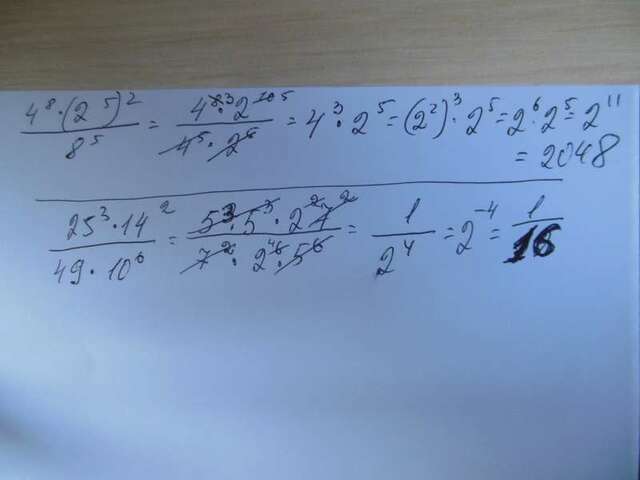 4⁸·(2⁵)²/8⁵ = 4⁸˙³·2¹⁰ ⁵/4⁵·2⁵ = 4³·2⁵ = (2²)³·2⁵ = 2⁶·2⁵ = 2¹¹
= 2048
25³·14²/49·10⁶ = 5³·5³·2²·7²/7²·2⁴⁶·5⁶ = 1/2⁴ = 2⁻⁴ = 1/16